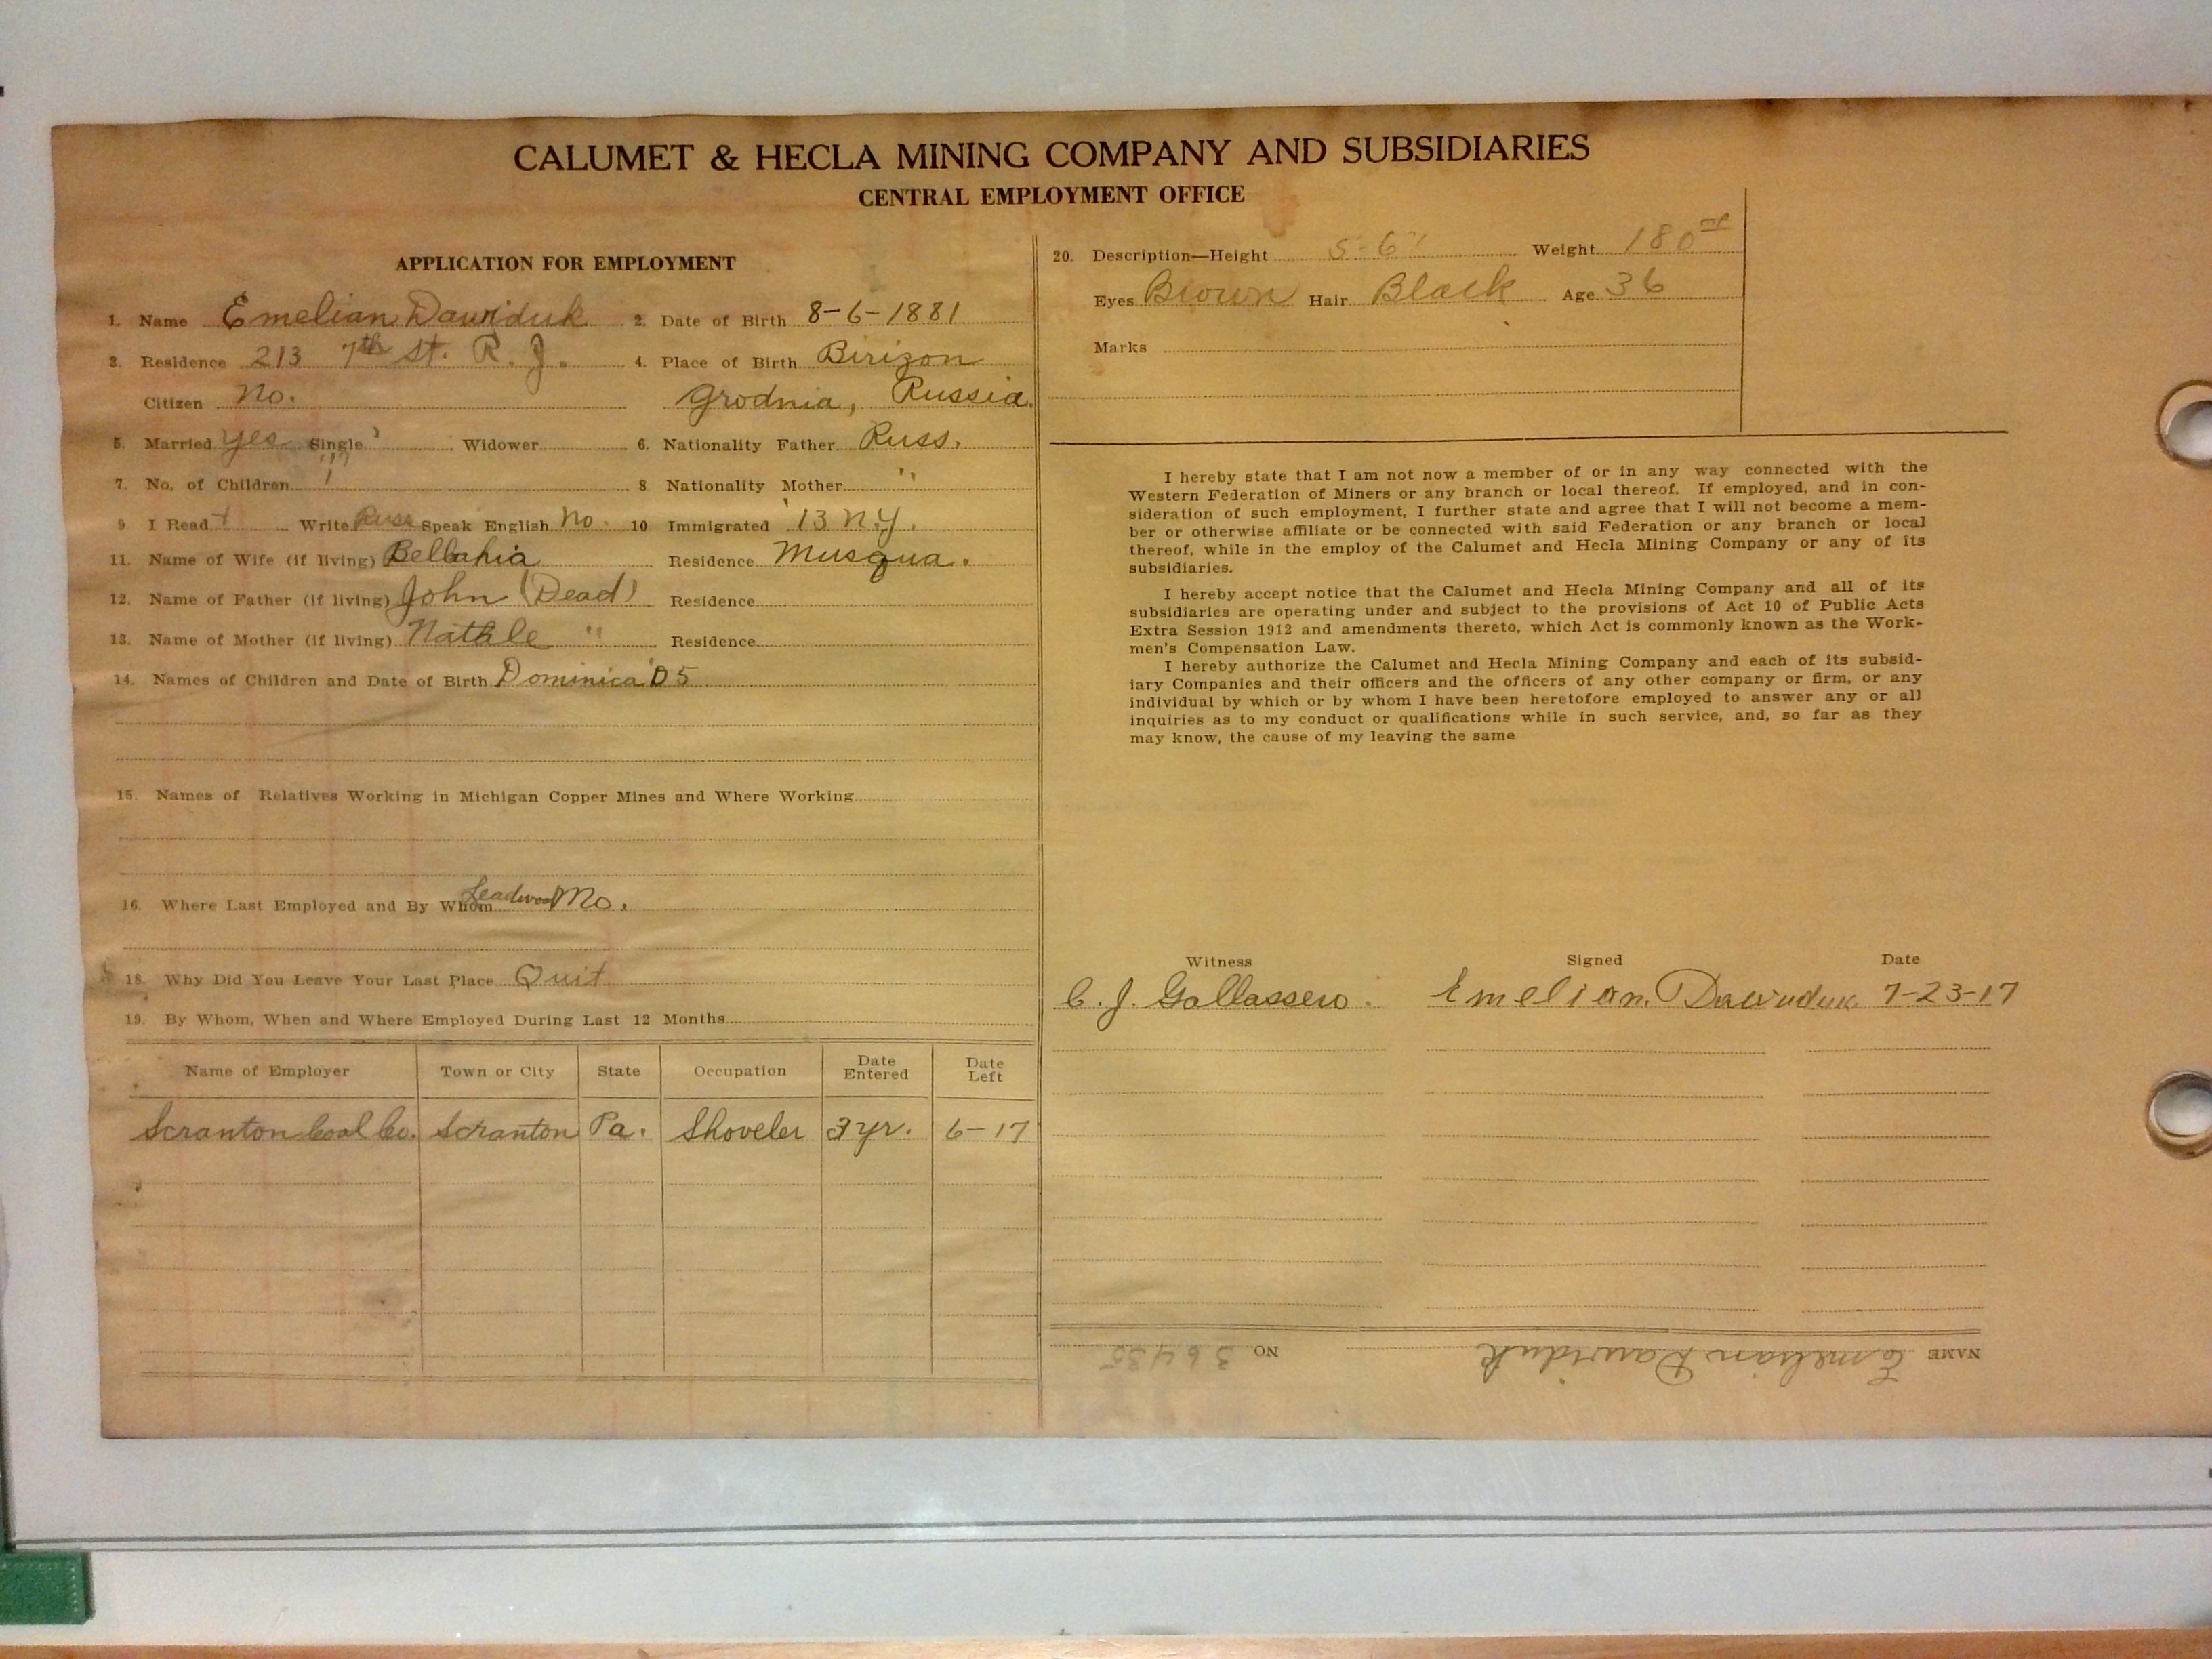 CALUMET & HECLA MINING COMPANY AND SUBSIDIARIES
CENTRAL EMPLOYMENT OFFICE
APPLICATION FOR EMPLOYMENT
1. Name Emelian Dawiduk 2. Date of Birth 8-6-1881
3. Residence 213 7th St. R. J. 4. Place of Birth Birizon
Citizen No. Grodnia, Russia.
5. Married Yes Single Widower 6. Nationality Father Russ.
7. No. of Children 1 8 Nationality Mother "
9 I Read + Write Russ Speak English No. 10 Immigrated '13 N.Y.
11. Name of Wife (if living) Bellahia Residence Musqua.
12. Name of Father (if living) John (Dead) Residence
13. Name of Mother (if living) Nathle " Residence
14. Names of Children and Date of Birth Dominica '05
15. Names of Relatives Working in Michigan Copper Mines and Where Working
16. Where Last Employed and By Whom Leadwood Mo.
18. Why Did You Leave Your Last Place Quit
19. By Whom, When and Where Employed During Last 12 Months
Name of Employer Town or City State Occupation Date Entered Date Left
Scranton Coal Co. Scranton Pa. Shoveler 3 yr. 6-17
20. Description—Height 5-6" Weight 180
Eyes Brown Hair Black Age 36
Marks
I hereby state that I am not now a member of or in any way connected with the
Western Federation of Miners or any branch or local thereof. If employed, and in con-
sideration of such employment, I further state and agree that I will not become a mem-
ber or otherwise affiliate or be connected with said Federation or any branch or local
thereof, while in the employ of the Calumet and Hecla Mining Company or any of its
subsidiaries.
I hereby accept notice that the Calumet and Hecla Mining Company and all of its
subsidiaries are operating under and subject to the provisions of Act 10 of Public Acts
Extra Session 1912 and amendments thereto, which Act is commonly known as the Work-
men's Compensation Law.
I hereby authorize the Calumet and Hecla Mining Company and each of its subsid-
iary Companies and their officers and the officers of any other company or firm, or any
individual by which or by whom I have been heretofore employed to answer any or all
inquiries as to my conduct or qualifications while in such service, and, so far as they
may know, the cause of my leaving the same
Witness Signed Date
C. J. Gallassero. Emelian Dawuduk 7-23-17
NAME Emelian Dawiduk NO 36435